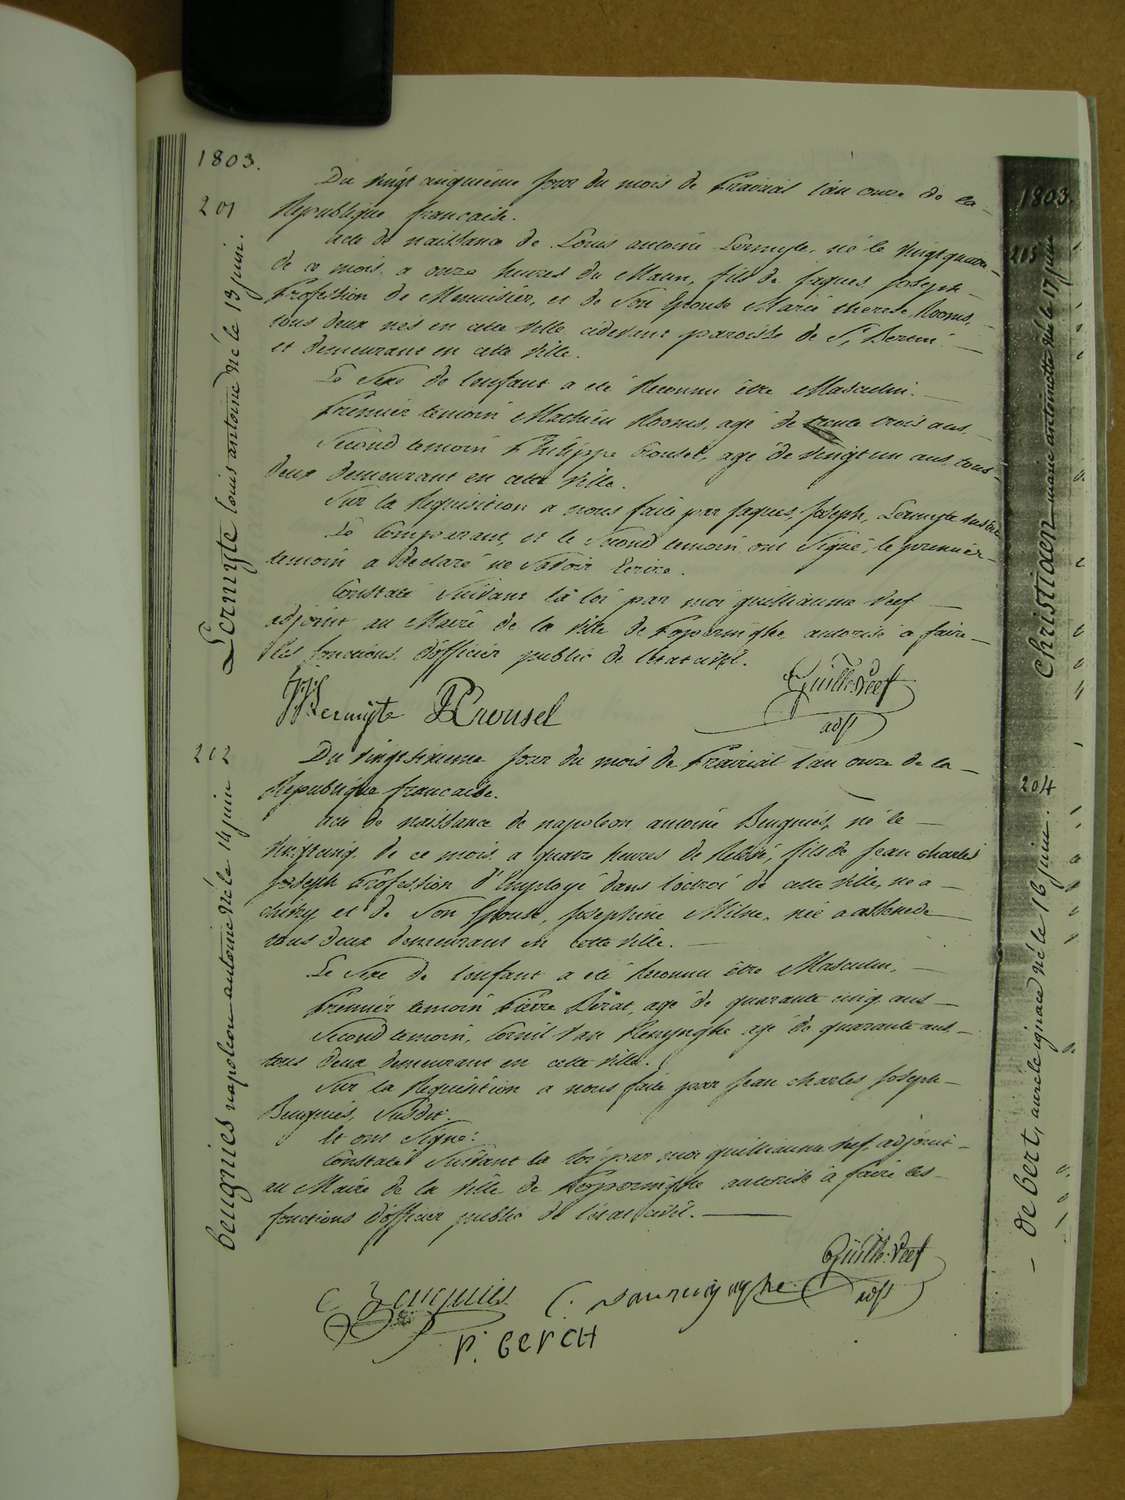 1803.
201
Lermyte louis antoine né le 13 juin.
Du vingt cinquième jour du mois de Prairial l'an onze de la
Republique francaise.
acte de naissance de Louis antoine Lermyte, né le vingt quatre
de ce mois a onze heures du Matin, fils de Jaques Joseph
Profession de Menuisier, et de Son Epouse Marie therese Rooms,
tous deux nés en cette ville cidevent paroisse de St Bertin
et demeurant en cette ville.
Le Sexe de l'enfant a été Reconnu être Masculin.
Premier temoin Mathieu Rooms, agé de trente trois ans,
Second temoin Philippe Crousel, agé de vingt un ans, tous
deux demeurant en cette ville.
Sur la Requisition a nous faite par Jaques Joseph Lermyte susdit
Le Comparant, et le Second temoin ont Signé, le premier
temoin a Declaré ne Savoir Ecrire.
Constaté Suivant la loi par moi guilliaume Reef
adjoint au Maire de la Ville de Poperinghe autorisé a faire
les fonctions d'officier public de l'etat civil.
JJ Lermyte P Crousel Guille. Reef
adjt
202
beugnies napoleon antoine né le 14 juin
Du vingt sixieme Jour du mois de Prairial l'an onze de la
Republique francaise.
Acte de naissance de napoleon antoine Beugnies, né le
vingt cinq de ce mois a quatre heures de Relevé, fils de Jean charles
Joseph Profession d'Employé dans l'octroi de cette Ville, né a
chimy et de Son Epouse, Josephine Milne, née a
tous Deux demeurant en cette ville.
Le Sexe de l'enfant a été Reconnu être Masculin,
Premier temoin Pierre agé de quarante cinq ans
Second temoin, Cornil Van Renynghe agé de quarante ans
tous deux demeurant en cette ville.
Sur la Requisition a nous faite par Jean charles Joseph
Beugnies, Susdit.
Et ont Signé.
Constaté Suivant la loi par moi guilliaume Reef adjoint
au Maire de la Ville de Poperinghe autorisé a faire les
fonctions d'officier public de l'etat civil.
Guille. Reef
adjt
C. Beugnies
P. Gerch
1803.
203
christiaen marie antoinette née le 17 juin
204
de bert, aurele ignace né le 16 juin.